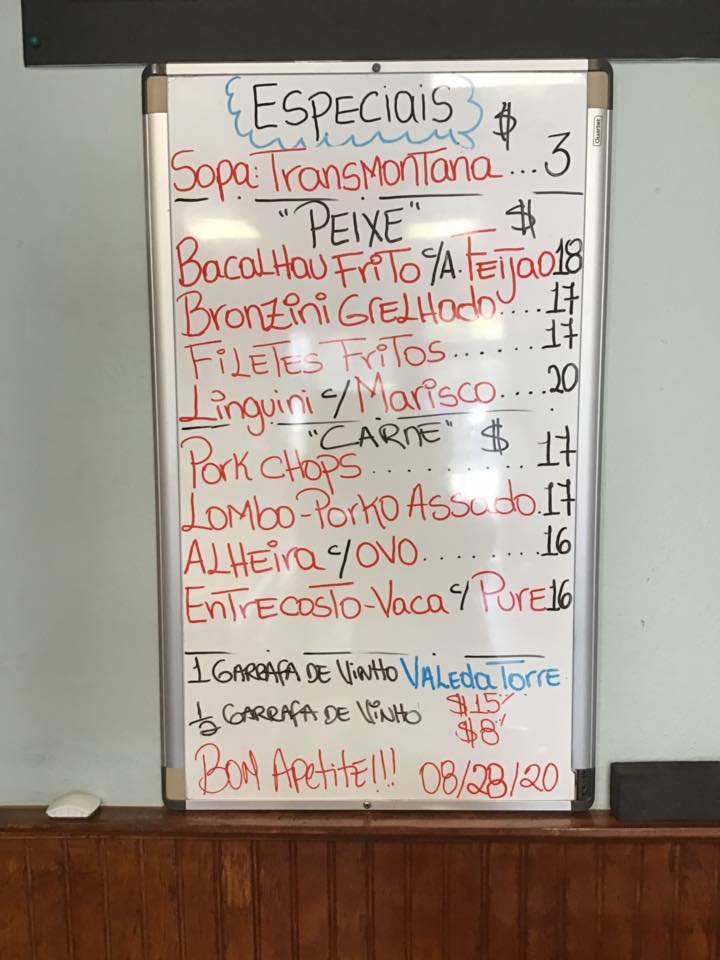 ESPECIAIS $
Sopa: TransMONTana ... 3
"PEIXE" $
BacaLHau FriTO c/A. FEiJao 18
BronZini GrELHado .... 17
FiLETES FriTOS ...... 17
Linguini c/ Marisco .... 20
"CARNE" $
Pork CHOPS .......... 17
LOMBO-Porko Assado. 17
ALHEira c/ OVO ........ 16
EnTrECOSTO-Vaca c/ PurE 16
1 GARRAFA DE VINHO VALEdaTorrE
$15
1/2 GARRAFA DE VINHO
$8
BON APETITE!!! 08/28/20
Quartet